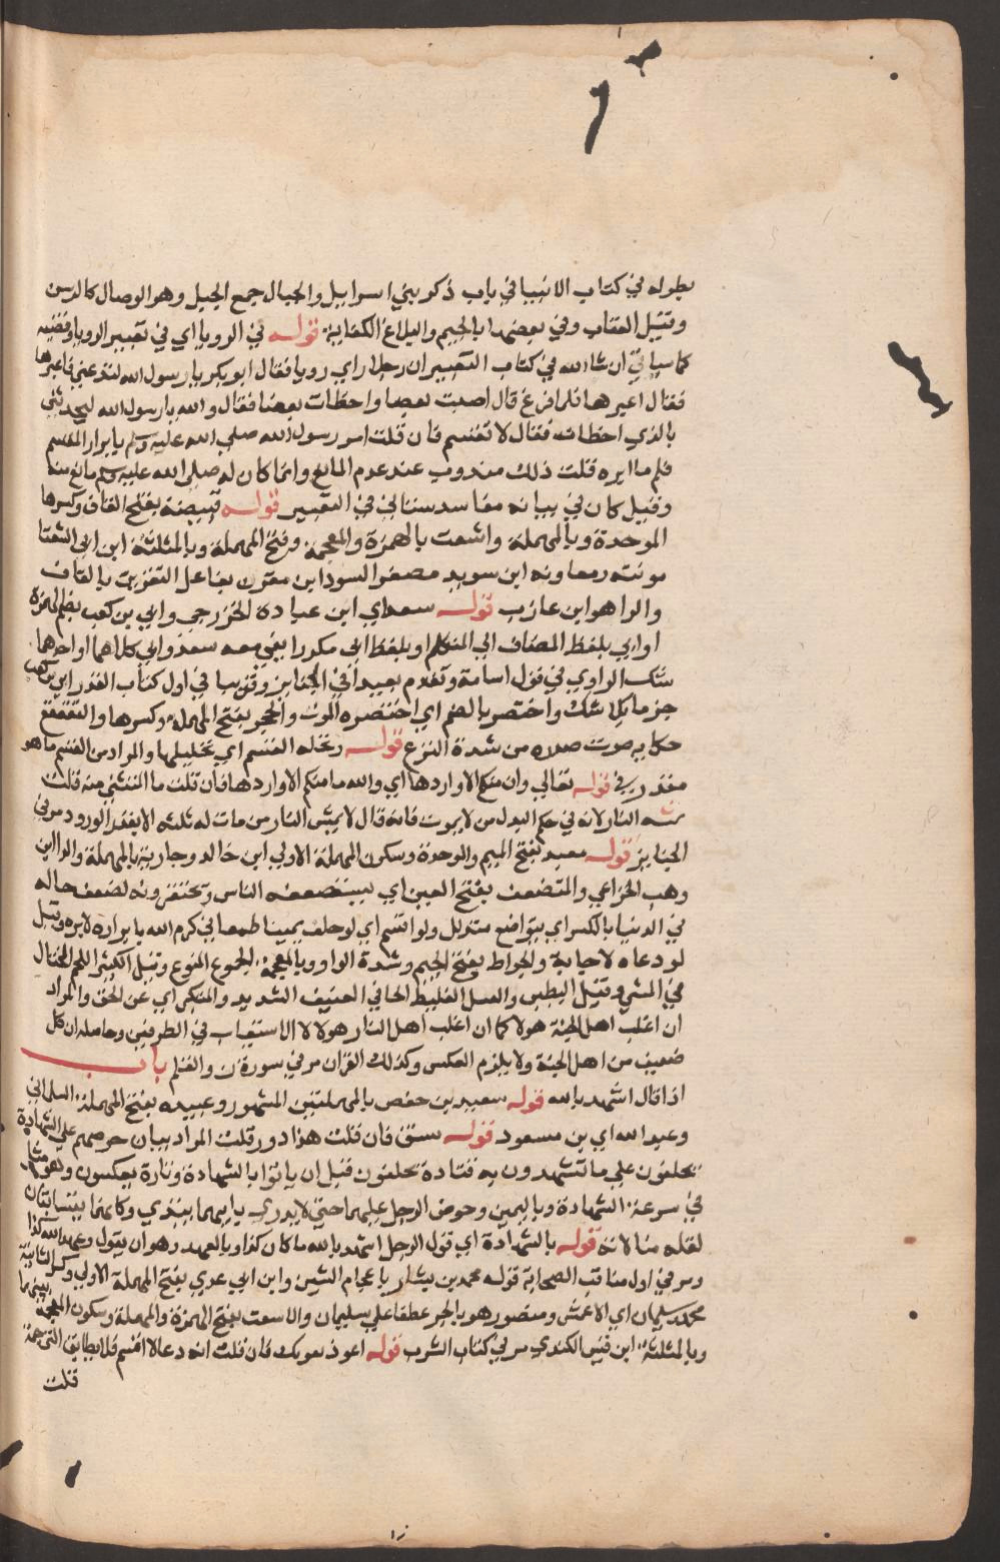 بطوله في كتاب الانبيا في باب ذكر بني اسراييل والحبال جمع الحبل وهو الوصال كالرسن
وقيل العقاب وفي بعضها بالجيم والبلاغ الكفاية قوله في الرويا اي في تعبير الرويا وقضيته
كما سياتي ان شا الله في كتاب التعبير ان رجلا راي رويا فقال ابو بكر يا رسول الله لتدعني فاعبرها
فقال اعبرها فلما فرغ قال اصبت بعضا واخطات بعضا فقال والله يا رسول الله لتحدثني
بالذي اخطات فقال لا تقسم فان قلت امر رسول الله صلي الله عليه وسلم بابرار المقسم
فلم ما ابره قلت ذلك مندوب عند عدم المانع وانما كان له صلي الله عليه وسلم مانع منه
وقيل كان في بيانه مفاسد ستاتي في التعبير قوله قبيصة بفتح القاف وكسر
الموحدة وبالمهملة واشعث بالهمزة والمعجمة وفتح المهملة وبالمثلثة ابن ابي الشعثا
مونث ومعاوية ابن سويد مصغر السود ابن مقرن بفاعل التقرين بالقاف
والرا هو ابن عازب قوله سعد اي ابن عبادة الخزرجي وابي بن كعب بضم الهمزة
او ابي بلفظ المضاف الي المتكلم او بلفظ ابي مكررا يعني معه سعد وابي كلاهما او احدهما
شك الراوي في قول اسامة وتقدم بعيدا في الجنايز وقريبا في اول كتاب القدر ابي بن كعب
جزما بلا شك واحتضر بالضم اي احتضره الموت والحجر بفتح المهملة وكسرها والتقعقع
حكاية صوت صدره من شدة النزع قوله تحله القسم اي تحليلها والمراد من القسم ما هو
مقدر في قوله تعالي وان منكم الا واردها اي والله ما منكم الا واردها فان قلت ما المستثني منه قلت
تمسه النار لانه في حكم البدل من لا يموت فانه قال لا يمس النار من مات له ثلثه الا بقدر الورود مر في
الجنايز قوله معبد بفتح الميم والموحدة وسكون المهملة الاولي ابن خالد وجارية بالمهملة والرا ابن
وهب الخزاعي والمتضعف بفتح العين اي يستضعفه الناس ويحتقرونه لضعف حاله
في الدنيا بالكسر اي متواضع متذلل ولو اقسم اي لو حلف يمينا طمعا في كرم الله بابراره لابره وقيل
لو دعاه لاجابه والجواط بفتح الجيم وشدة الواو وبالمعجمة الجموع المنوع وقيل الكثير اللحم المختال
في المشي وقيل البطين والعتل الغليظ الجافي العنيف الشديد والمتكبر اي عن الحق والمراد
ان اغلب اهل الجنة هولا كما ان اغلب اهل النار هولا لا الاستيعاب في الطرفين وحاصله ان كل
ضعيف من اهل الجنة ولا يلزم العكس وكذلك القران مر في سورة ن والقلم باب
اذا قال اشهد بالله قوله سعد بن حفص بالمهملتين المشهور وعبيده بفتح المهملة السلماني
وعبد الله اي بن مسعود قوله سبق فان قلت هذا دور قلت المراد بيان حرصهم علي الشهادة
يحلفون علي ما تشهدون به فتارة يحلفون قبل ان ياتوا بالشهادة وتارة يعكسون وهو مثل
في سرعة الشهادة وباليمين وحرض الرجل عليهما حتي لا يدري بايهما يبتدي وكانهما يتسابقان
لقله مبالاته قوله بالشهادة اي قول الرجل اشهد بالله ما كان كذا وبالعهد وهو ان يقول وعهد الله كذا
ومر في اول مناقب الصحابة قوله محمد بن بشار باعجام الشين وابن ابي عدي بفتح المهملة الاولي وكسر الثانية
محمد وسليمان اي الاعمش ومنصور هو بالجر عطفا علي سليمان والاشعث بفتح الهمزة والمهملة وسكون المعجمة بينهما
وبالمثلثة ابن قيس الكندي مر في كتاب الشرب قوله اعوذ بعزتك فان قلت انه دعا لا قسم فلا يطابق الترجمة
قلت